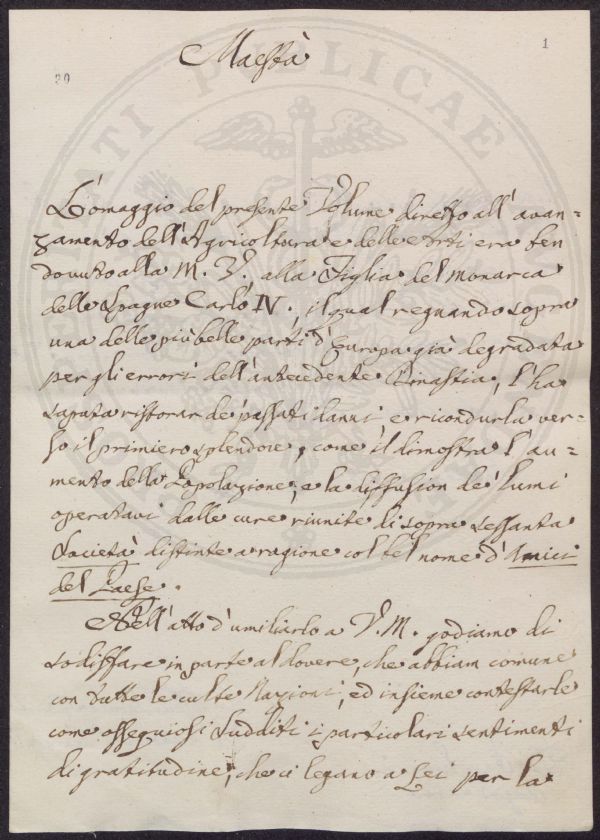 1
20
Maestà
L'omaggio del presente Volume diretto all'avan=
zamento dell'Agricoltura e delle Arti era ben
dovuto alla M. V. alla Figlia del monarca
delle Spagne Carlo IV., il qual regnando sopra
una delle più belle parti d'Europa già degradata
per gli errori dell'antecedente Dinastia, l'ha
saputa ristorar de' passati danni, e ricondurla ver=
so il primiero splendore, come il dimostra l'au=
mento della Popolazione, e la diffusion de' lumi
operatavi dalle cure riunite di sopra sessanta
Società distinte a ragione col bel nome d'Amici
del Paese.
Nell'atto d'umiliarlo a V. M. godiamo di
sodisfare in parte al dovere, che abbiam comune
con tutte le culte Nazioni, ed insieme contestarle
come ossequiosi sudditi i particolari sentimenti
di gratitudine, che ci legano a Lei per la